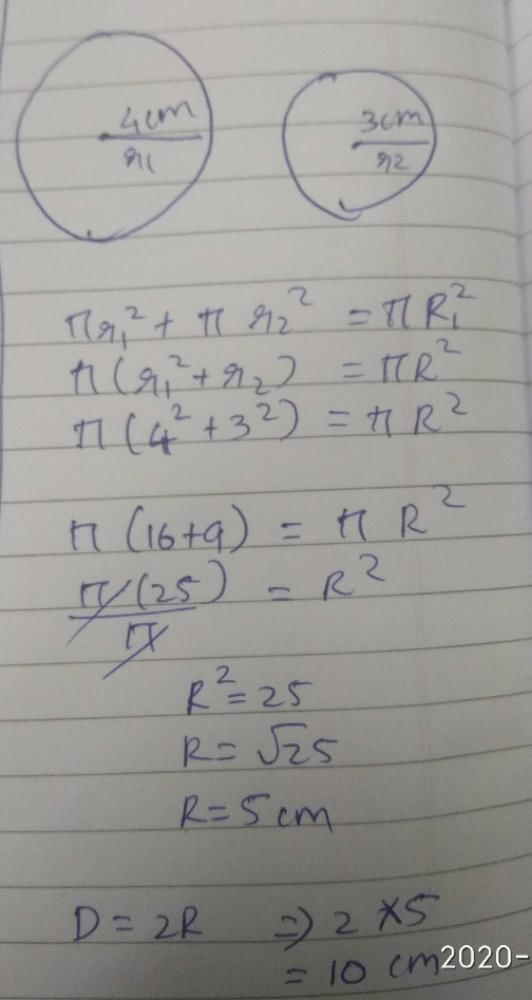 4cm
r₁
3cm
r₂
πr₁² + π r₂² = πR₁²
π(r₁² + r₂) = πR²
π(4² + 3²) = πR²
π(16+9) = π R²
π(25)/π = R²
R² = 25
R = √25
R = 5 cm
D = 2R ⇒ 2 × 5
= 10 cm
2020-